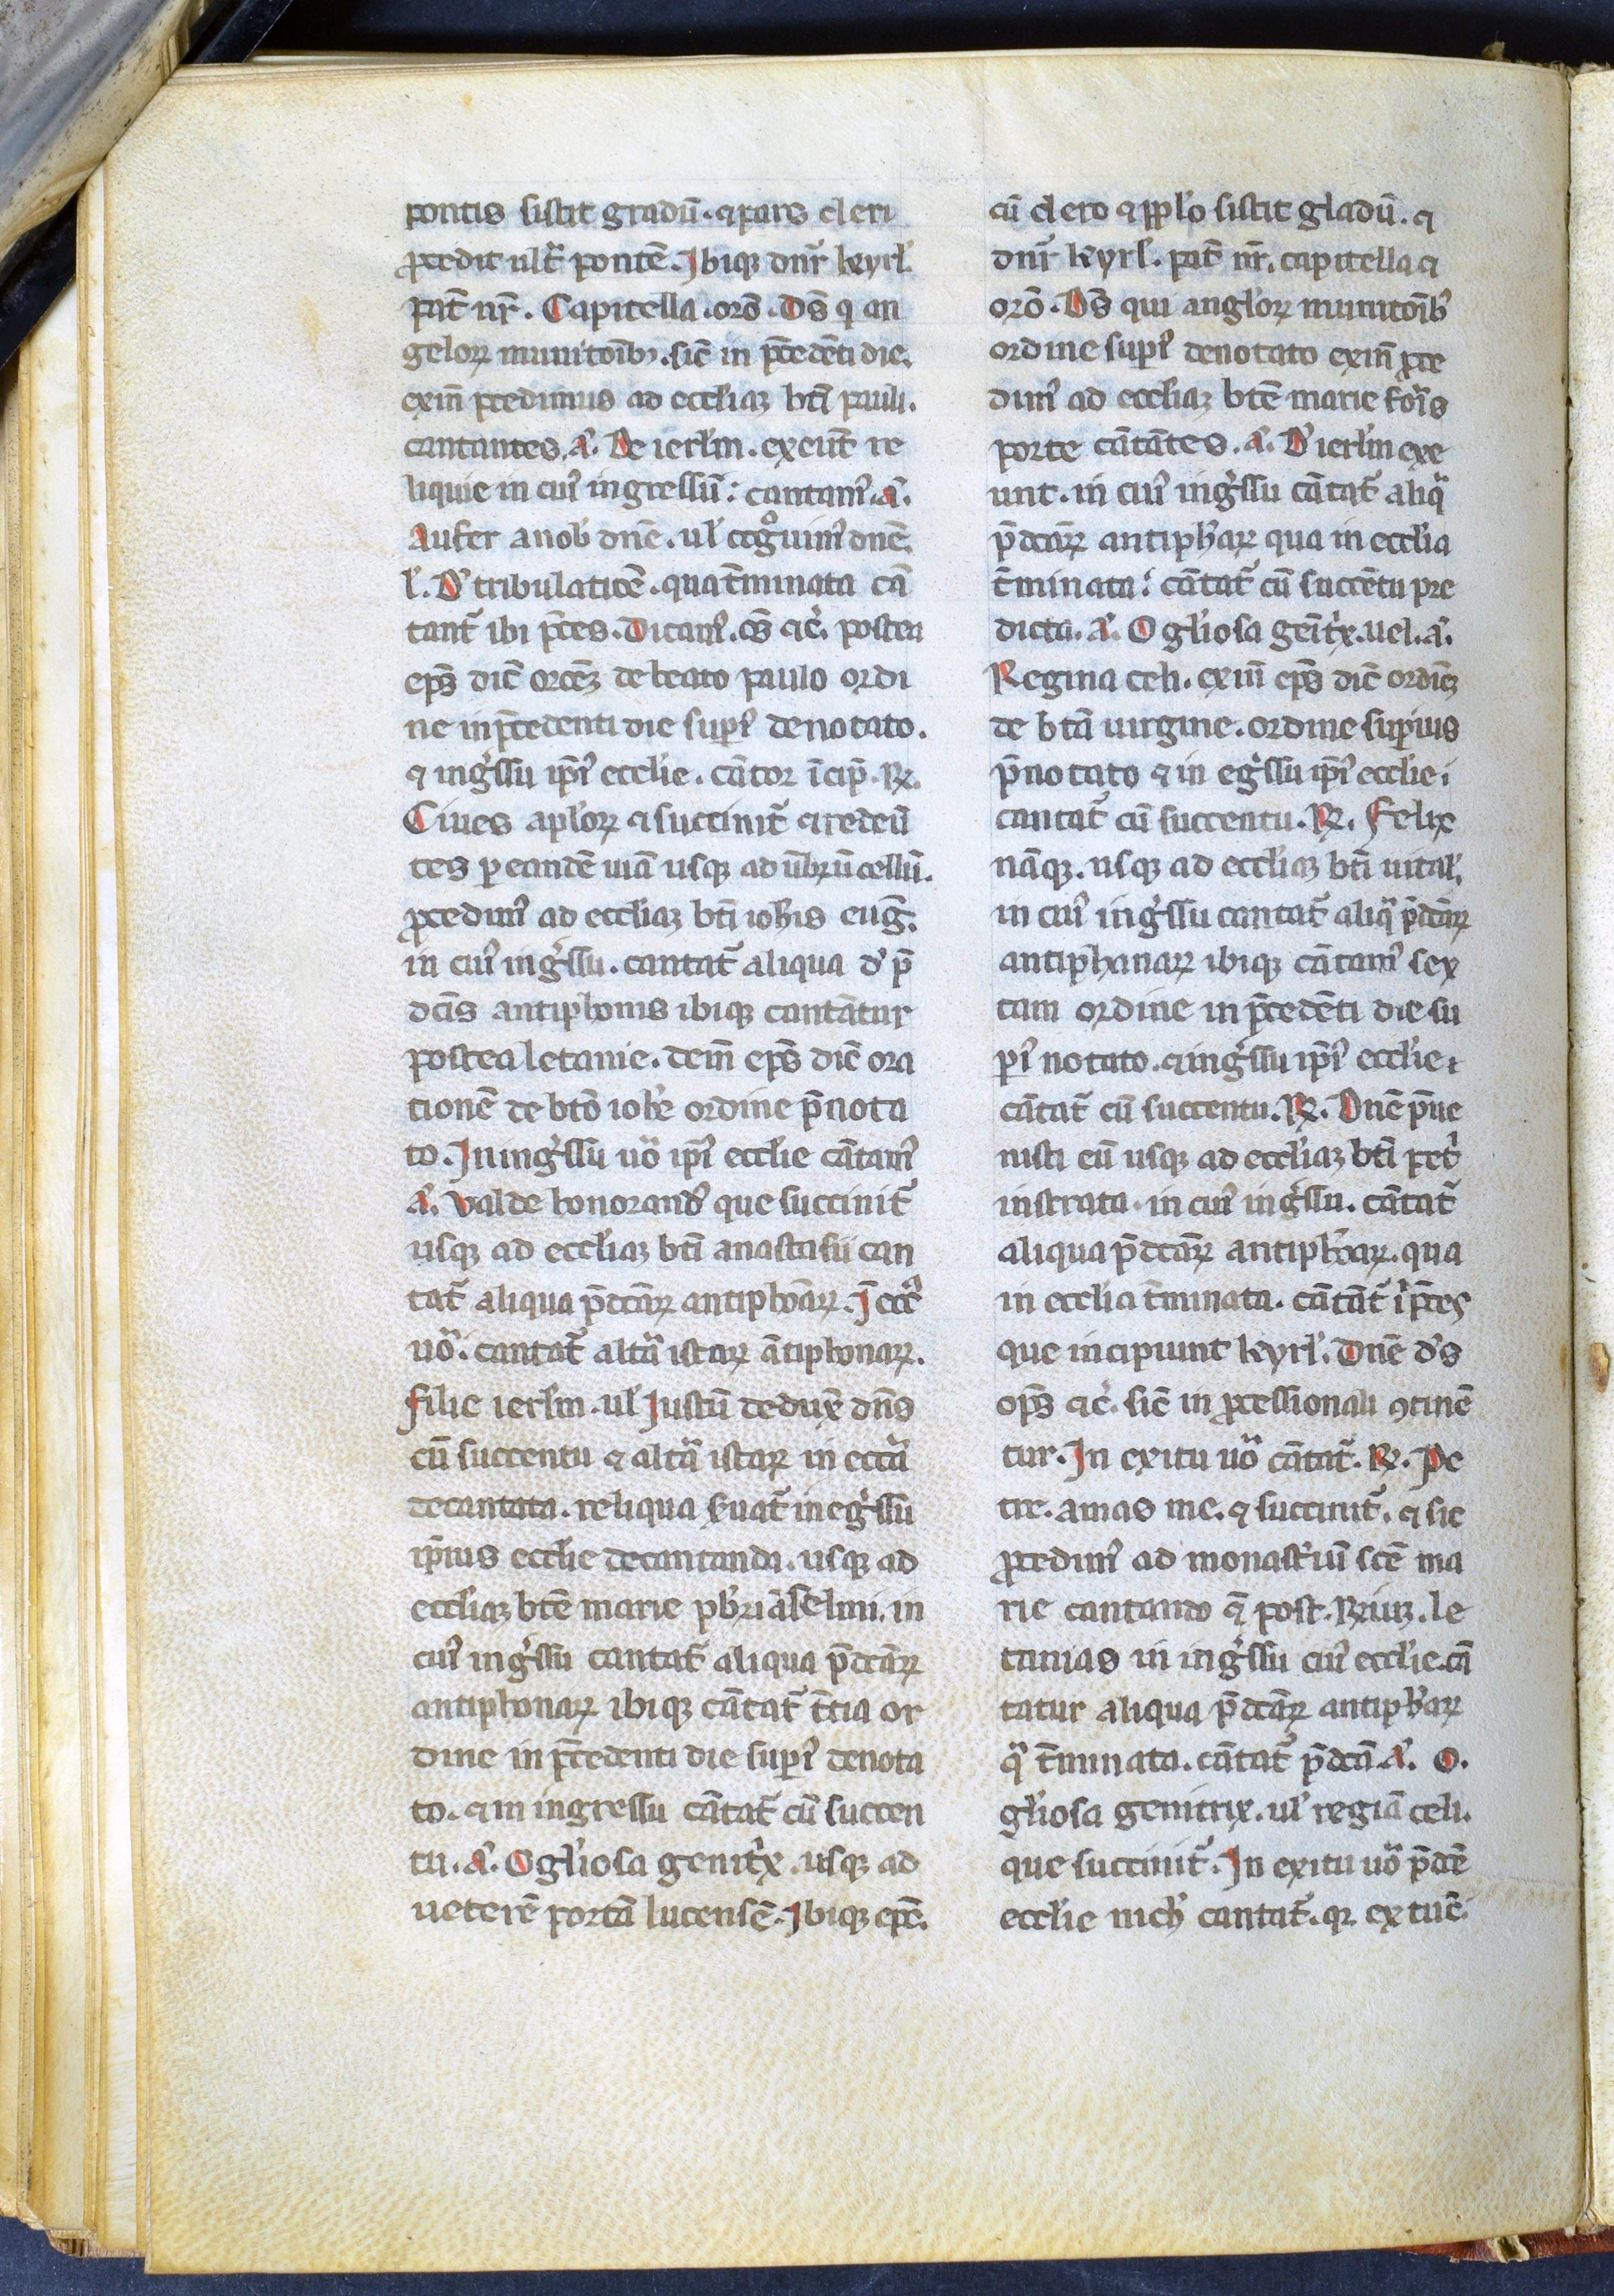 pontis sistit gradū. ⁊ pars cleri
ꝓcedit ult̄ pontē. Ibiqꝫ dn̄r kyrl̕.
pat̄ nr̄. Capitella. orō. Ds̄ q an
geloꝝ munitōibꝫ. sic̄ in p̄cedēti die.
exin̄ p̄cedimus ad eccliaꝫ bt̄i pauli.
cantantes. a͛. De ierl̕m. exeūt re
liquie in cui᷒ ingressū: cantam᷒. a͛.
Aufer a nob̕ dn̄e. ul̕ cōgͦuim᷒ dn̄e.
l̕. D̕ tribulatiōe. qua t̄minata cā
tant᷑ ibi p̄ces. Dicam᷒. os̄ ⁊c̕. postea
ep̄s dic̄ orōeꝫ de beato paulo ordi
ne in p̄cedenti die supi᷒ denotato.
⁊ ing̕ssu ip̄i᷒ ecclie. cātor īcip̄. ℞.
Ciues apl̕oꝝ ⁊ succinit᷑ ⁊ redeū
tes p eandē uiā usqꝫ ad ūbrūcellū.
ꝓcedim᷒ ad eccliaꝫ bt̄i ioh̄is euḡ.
in cui᷒ ing̕ssu. cantat᷑ aliqua d̕ p̄
dc̄is antiphonis ibiqꝫ cantātur
postea letanie. dein̄ ep̄s dic̄ ora
tionē de bt̄o ioh̄e ordine p̄nota
to. In ing̕ssu uͦo ip̄i᷒ ecclie cātam᷒
a͛. Valde honorand᷒ que succinit᷑
usqꝫ ad eccliaꝫ bt̄i anastasii can
tat᷑ aliqua p̄dcāꝝ antiphōaꝝ. I ecc̕
uͦo. cantat᷑ alt̄a istaꝝ ātiphonaꝝ.
filie ierl̕m. ul̕ Iustū dedux̄ dn̄s
cū succentu ⁊ alt̄a istaꝝ in eccl̕a
decantata. reliqua ẜuat᷑ in eg̕ssu
ip̄ius ecclie decantanda. usqꝫ ad
eccliaꝫ bt̄e marie pb̄ri āselmi. in
cui᷒ ing̕ssu cantat᷑ aliqua p̄dcāꝝ
antiphonaꝝ ibiqꝫ cātat᷑ t̄tia or
dine in p̄cedenti die supi᷒ denota
to. ⁊ in ingressu cātat᷑ cū succen
tu. a͛. O gl̕iosa genit̕x. usqꝫ ad
ueterē portā lucensē. Ibiqꝫ epc̄.
cū clero ⁊ ppl̕o sistit gladū. ⁊
dn̄r kyrl̕. pat̄ nr̄. capitella ⁊
orō. Ds̄ qui angl̕oꝝ munitōib᷒
ordine supi᷒ denotato exin̄ ꝓce
dim᷒ ad eccliaꝫ bt̄e marie foris
porte cātātes. a͛. D̕ ierl̕m exe
unt. in cui᷒ ing̕ssu cātat᷑ aliqͣ
p̄dcāꝝ antiph̕aꝝ qua in ecclia
t̄minata: cātat᷑ cū succētu pre
dicta. a͛. O gl̕iosa genit̕x. uel. a͛.
Regina celi. exin̄ ep̄s dic̄ ordīeꝫ
de bt̄a uirgine. ordine superius
p̄notato ⁊ in eg̕ssu ip̄i᷒ ecclie
cantat᷑ cū succentu. ℞. Felix
nāqꝫ. usqꝫ ad eccliaꝫ bt̄i uital̕.
in cui᷒ ing̕ssu cantat᷑ aliqͣ p̄dcāꝝ
antiphanaꝝ ibiqꝫ cātam᷒ sex
tam ordine in p̄cedēti die su
pi᷒ notato. ⁊ ing̕ssu ip̄i᷒ ecclie
cātat᷑ cū succentu. ℞. Dn̄e p̄ue
nisti eū usqꝫ ad eccliaꝫ bt̄i pet̕
in strata. in cui᷒ ing̕ssu. cātat᷑
aliqua p̄dcāꝝ antiph̕oaꝝ. qua
in ecclia t̄minata. cātāt᷑ i᷒ p̄ces
que incipiunt kyrl̕. Dn̄e d̕s
op̄s ⁊c̕. sic̄ in ꝓcessionali ꝯtinē
tur. In exitu uͦo cātat᷑. ℞. Pe
tre. amas me. ⁊ succinit᷑. ⁊ sic
ꝓcedim᷒ ad monast̕iū sc̄e ma
rie cantando q̄ post. Rr̄iuꝫ. le
tanias in ing̕ssu cui᷒ ecclie. cā
tatur aliqua p̄dcāꝝ antiph̕aꝝ
qͣ t̄minata. cātat᷑ p̄dcā. a͛. O.
gl̕iosa genitrix. ul̕ regiā celi.
que succinit᷑. In exitu uͦo p̄dc̄e
ecclie nich̕ cantat᷑. qꝛ ex tūc